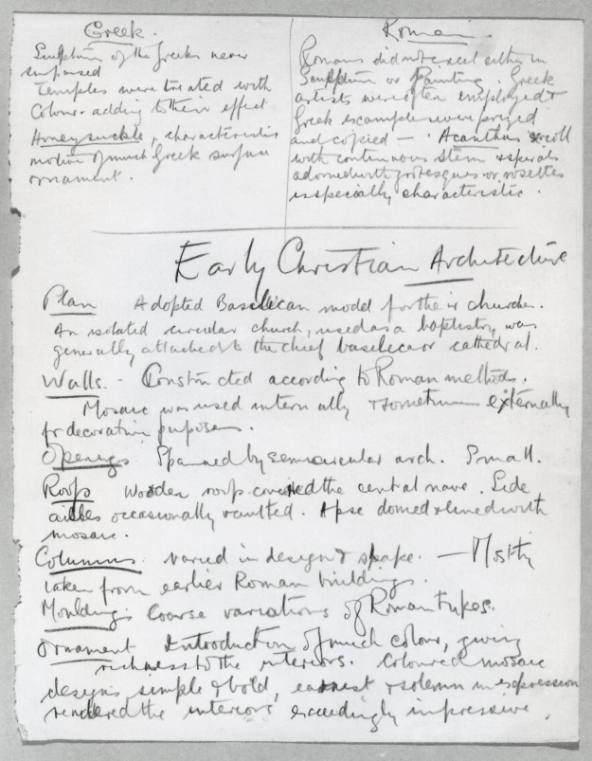 Greek.
Sculpture of the Greeks never
surpassed
Temples were treated with
Colour adding to their effect
Honeysuckle, characteristic
motion of much Greek surface
ornament.
Roman.
Romans did not excel either in
Sculpture or Painting. Greek
artists were often employed &
Greek examples were prized
and copied — . Acanthus scroll
with continuous stem & spirals
adorned with grotesques or rosettes
is specially characteristic.
Early Christian Architecture
Plan Adopted Basilican model for their churches.
An isolated circular church, used as a baptistry, was
generally, attached to the chief basilica or cathedral.
Walls. - Constructed according to Roman methods.
Mosaic was used internally & sometimes externally
for decorative purposes.
Openings Spanned by semicircular arch. Small.
Roofs Wooden roofs covered the central nave. Side
aisles occasionally vaulted. Apse domed & lined with
mosaic.
Columns varied in design & shape. — Mostly
taken from earlier Roman buildings.
Mouldings Coarse variations of Roman types.
Ornament Introduction of much colour, giving
richness to the interiors. Coloured mosaic
designs simple & bold, earnest & solemn in expression
rendered the interiors exceedingly impressive.